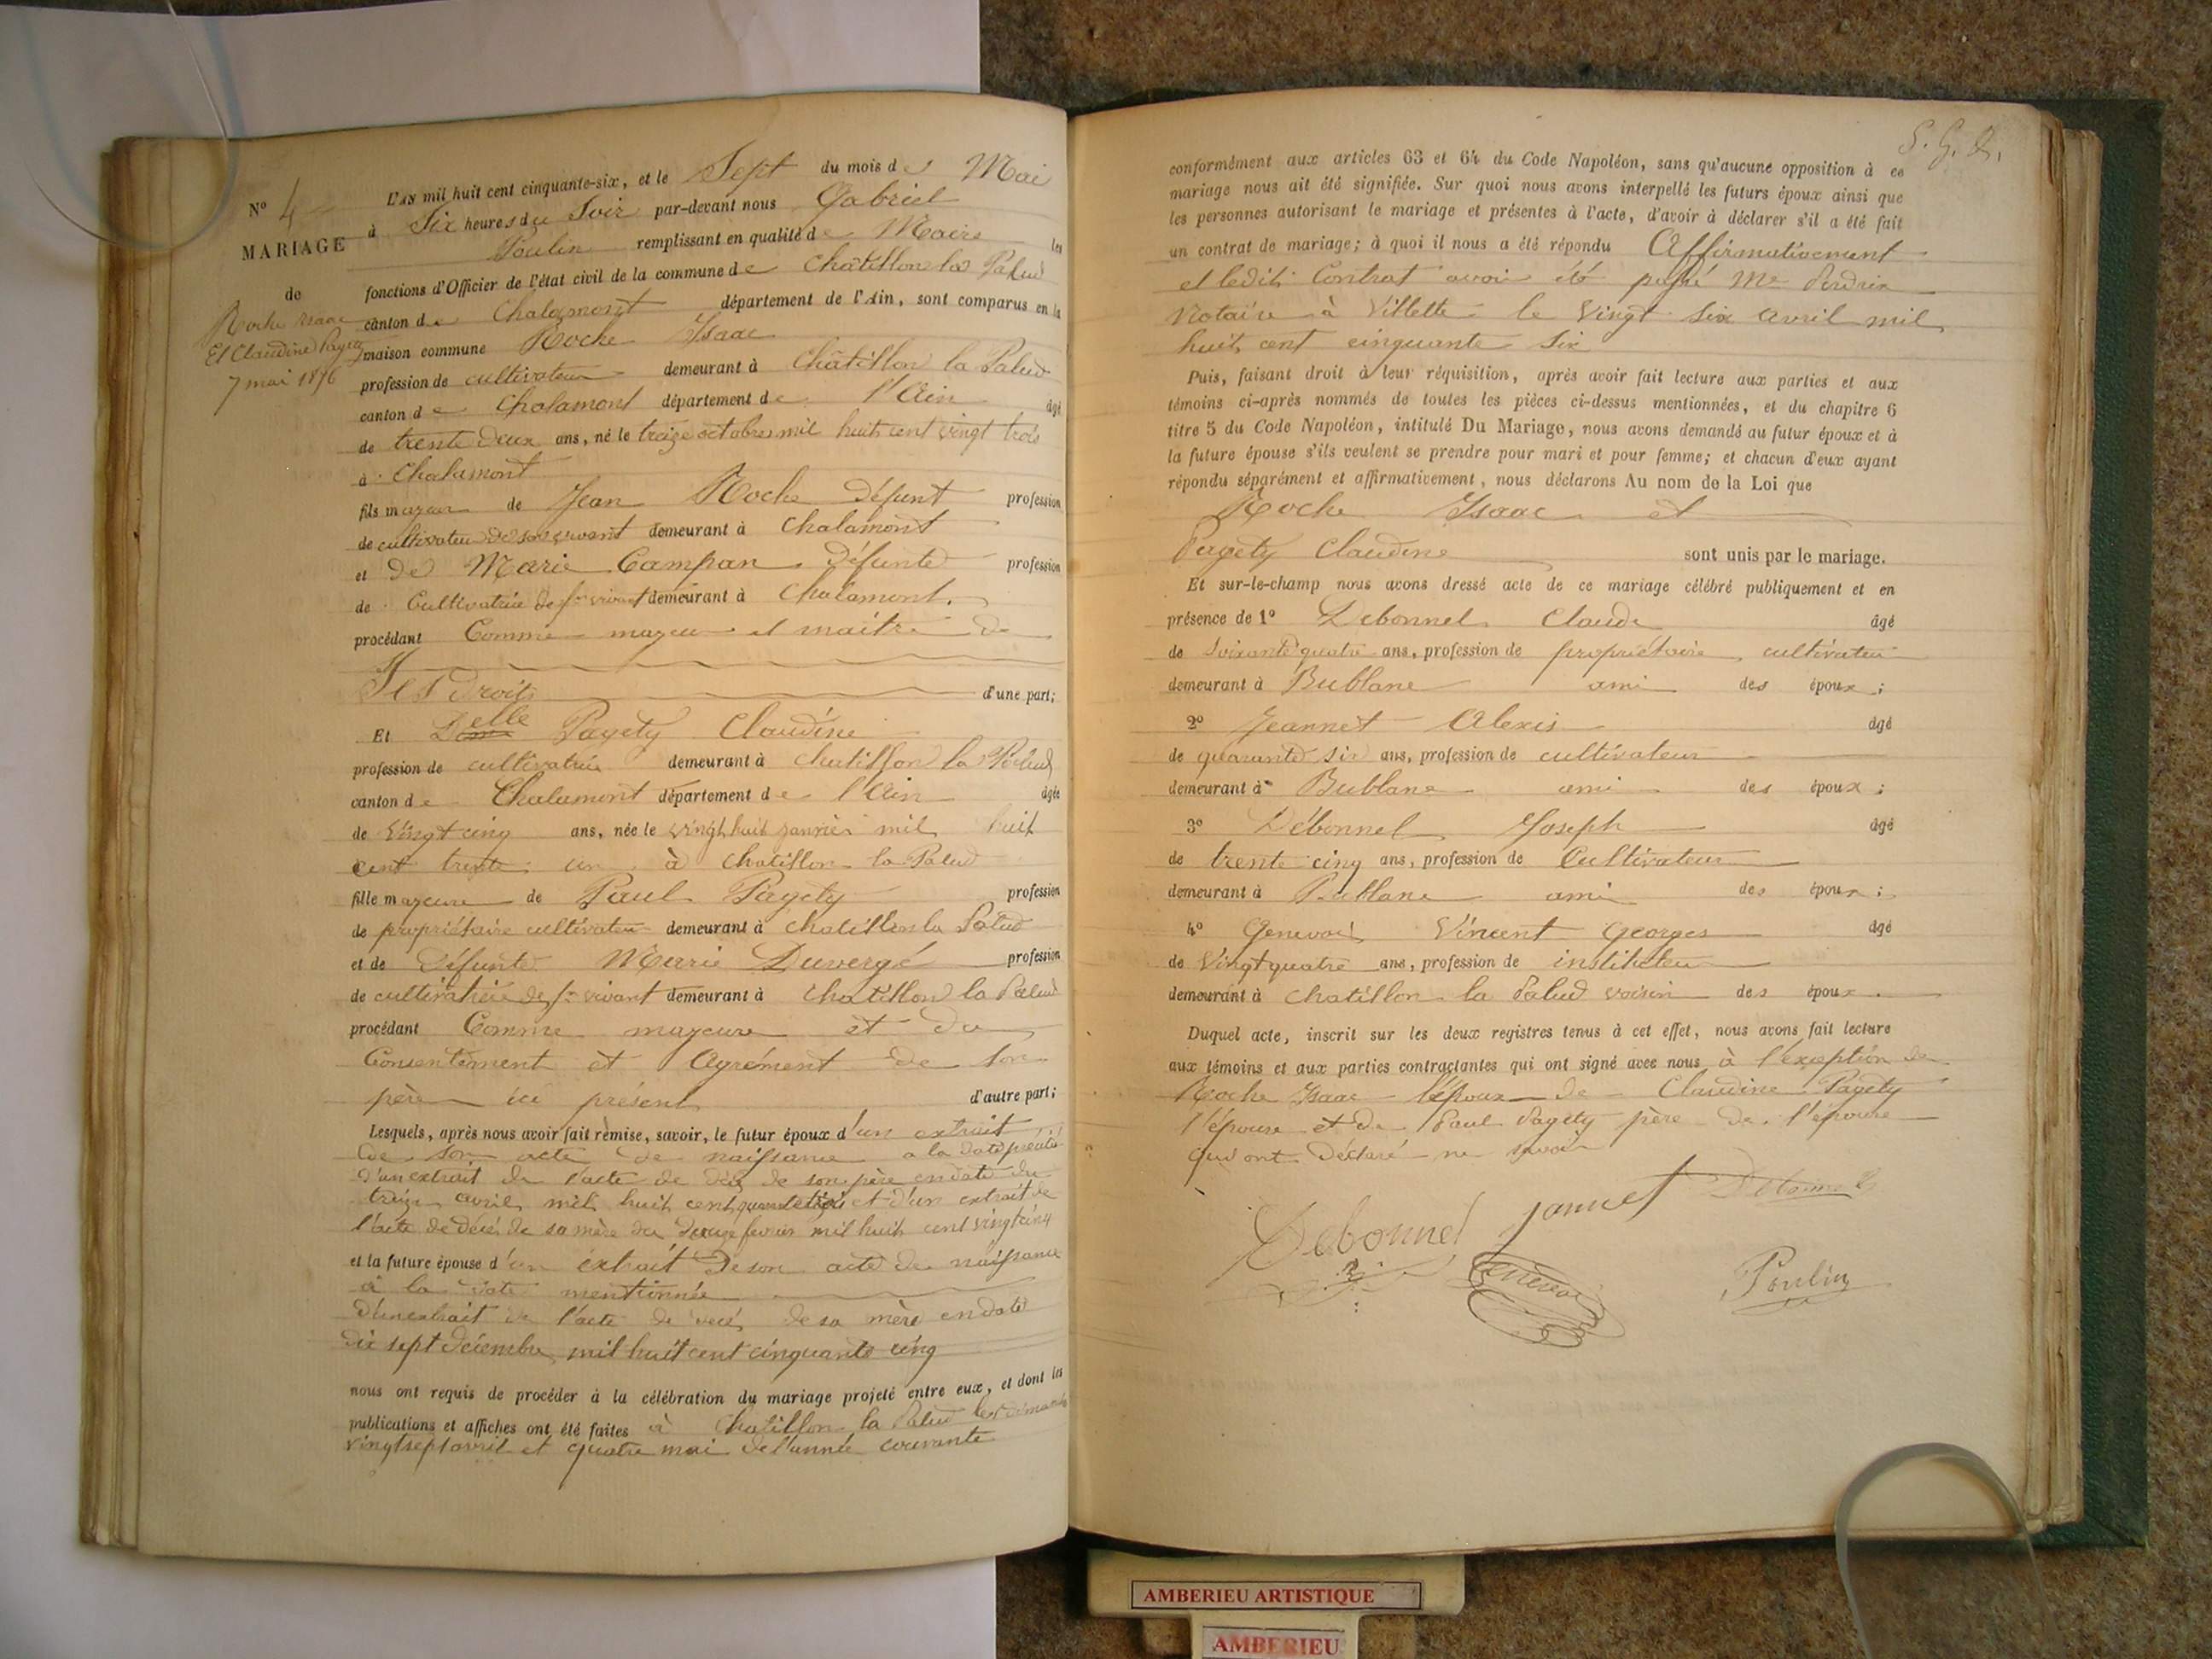 N° 4
MARIAGE
de
Roche Isaac
Et Claudine Pagety
7 mai 1856
L'AN mil huit cent cinquante-six, et le Sept du mois de Mai
à Six heures du Soir par-devant nous Gabriel
Poulin remplissant en qualité de Maire les
fonctions d'Officier de l'état civil de la commune de Châtillon la Palud
canton de Chalamont département de l'Ain, sont comparus en la
maison commune Roche Isaac
profession de cultivateur demeurant à Châtillon la Palud
canton de Chalamont département de l'Ain âgé
de trente deux ans, né le treize octobre mil huit cent vingt trois
à Chalamont
fils majeur de Jean Roche Défunt profession
de cultivateur de son vivant demeurant à Chalamont
et de Marie Campan Défunte profession
de Cultivatrice de sn vivant demeurant à Chalamont.
procédant Comme majeur et maître de
Ses Droits d'une part;
Et Delle Pagety Claudine
profession de cultivatrice demeurant à Chatillon la Palud
canton de Chalamont département de l'Ain âgée
de Vingt cinq ans, née le vingt huit janvier mil huit
cent trente un à Chatillon la Palud
fille majeure de Paul Pagety profession
de propriétaire cultivateur demeurant à Chatillon la Palud
et de Défunte Marie Duvergé profession
de cultivatrice de sn vivant demeurant à Chatillon la Palud
procédant Comme majeure et du
Consentement et Agrément de son
père ici présent d'autre part;
Lesquels, après nous avoir fait remise, savoir, le futur époux d'un extrait
de son acte de naissance a la date précitée
d'un extrait de l'acte de décès de son père en date du
treize avril mil huit cent quarante et d'un extrait de
l'acte de décès de sa mère du février mil huit cent vingt cinq
et la future épouse d'un extrait de son acte de naissance
à la date mentionnée
d'un extrait de l'acte de décès de sa mère en date
dix sept Décembre mil huit cent cinquante cinq
nous ont requis de procéder à la célébration du mariage projeté entre eux, et dont les
publications et affiches ont été faites à Chatillon la Palud les dimanches
vingt sept avril et quatre mai de l'année courante
S. G. D.
conformément aux articles 63 et 64 du Code Napoléon, sans qu'aucune opposition à ce
mariage nous ait été signifiée. Sur quoi nous avons interpellé les futurs époux ainsi que
les personnes autorisant le mariage et présentes à l'acte, d'avoir à déclarer s'il a été fait
un contrat de mariage; à quoi il nous a été répondu Affirmativement
et ledit Contrat avoir été passé Me Perdrix
Notaire à Villette le Vingt six avril mil
huit cent cinquante Six
Puis, faisant droit à leur réquisition, après avoir fait lecture aux parties et aux
témoins ci-après nommés de toutes les pièces ci-dessus mentionnées, et du chapitre 6
titre 5 du Code Napoléon, intitulé Du Mariage, nous avons demandé au futur époux et à
la future épouse s'ils veulent se prendre pour mari et pour femme; et chacun d'eux ayant
répondu séparément et affirmativement, nous déclarons Au nom de la Loi que
Roche Isaac et
Pagety Claudine sont unis par le mariage.
Et sur-le-champ nous avons dressé acte de ce mariage célébré publiquement et en
présence de 1° Debonnel Claude âgé
de Soixante quatre ans, profession de propriétaire cultivateur
demeurant à Bublane ami des époux;
2° Jeannet Alexis âgé
de quarante six ans, profession de cultivateur
demeurant à Bublane ami des époux;
3° Débonnel Joseph âgé
de trente cinq ans, profession de Cultivateur
demeurant à Bublane ami des époux;
4° Genevois Vincent Georges âgé
de Vingt quatre ans, profession de instituteur
demeurant à Chatillon la Palud voisin des époux.
Duquel acte, inscrit sur les deux registres tenus à cet effet, nous avons fait lecture
aux témoins et aux parties contractantes qui ont signé avec nous à l'exception de
Roche Isaac l'époux de Claudine Pagety
l'épouse et de Paul Pagety père de l'épouse
qui ont Déclaré ne savoir
Debonnel
Jannet
Debonnel
Genevois
Poulin
AMBERIEU ARTISTIQUE
AMBERIEU